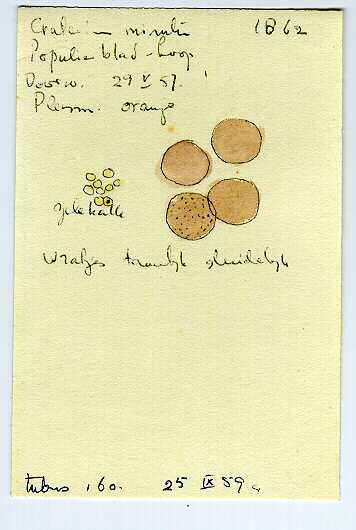 Craterium minutu 1862
Populier blad-hoop
Doorw. 29 V 57.
Plasm. orange
gele kalk
Wratjes tamelijk duidelijk
tubus 160. 25 IX 59